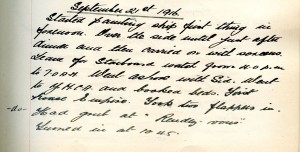 September 21st 1916
Started painting ship first thing in
forenoon. Over the side until just after
dinner and then carried on with
Leave for Starboard watch from 4.0 p.m
to 7.0 AM. Went ashore with Sid. Went
to and booked beds. First
house Empire. Took two flappers in.
Had grub at "Rendez-vous"
Turned in at 10.45.